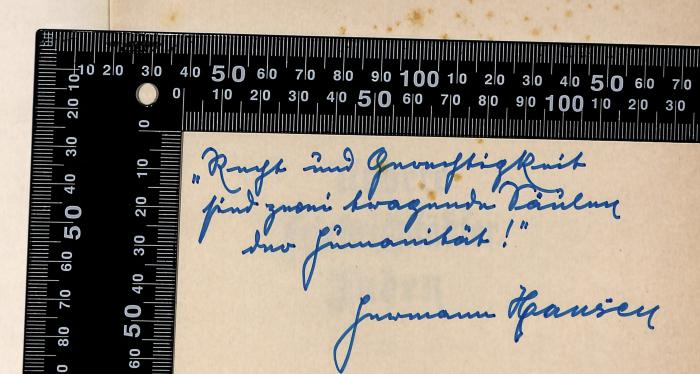 10 20 30 40 50 60 70 80 90 100 10 20 30 40 50 60 70
0 10 20 30 40 50 60 70 80 90 100 10 20 30
10 20 30 40 50 60 70 80
0 10 20 30 40 50 60
„Recht und Gerechtigkeit
sind zwei tragende Säulen
der Humanität!"
Hermann Hansen